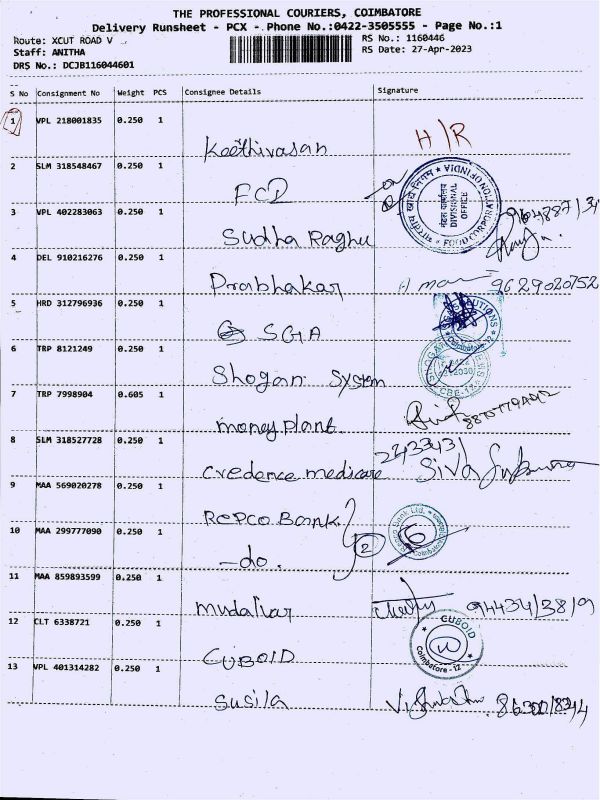 THE PROFESSIONAL COURIERS, COIMBATORE
Delivery Runsheet - PCX - Phone No.:0422-3505555 - Page No.:1
Route: XCUT ROAD V
RS No.: 1160446
Staff: ANITHA
RS Date: 27-Apr-2023
DRS No.: DCJB116044601
S No Consignment No Weight PCS Consignee Details Signature
1 VPL 218001835 0.250 1
Keethivasan H/R
2 SLM 318548467 0.250 1
FCI
3 VPL 402283063 0.250 1
Sudha Raghu
4 DEL 910216276 0.250 1
Prabhakar 9629020752
5 HRD 312796936 0.250 1
SGA
6 TRP 8121249 0.250 1
Shogan System
7 TRP 7998904 0.605 1
money plant
8 SLM 318527728 0.250 1
2433431
credence medicare Siva
9 MAA 569020278 0.250 1
Repco Bank
10 MAA 299777090 0.250 1
-do. 2
11 MAA 859893599 0.250 1
mudaliar
12 CLT 6338721 0.250 1
CUBOID
13 VPL 401314282 0.250 1
Susila
भारतीय खाद्य निगम
FOOD CORPORATION OF INDIA
मंडल कार्यालय
DIVISIONAL
OFFICE
Repco Bank Ltd.
Coimbatore
CUBOID
Coimbatore - 12